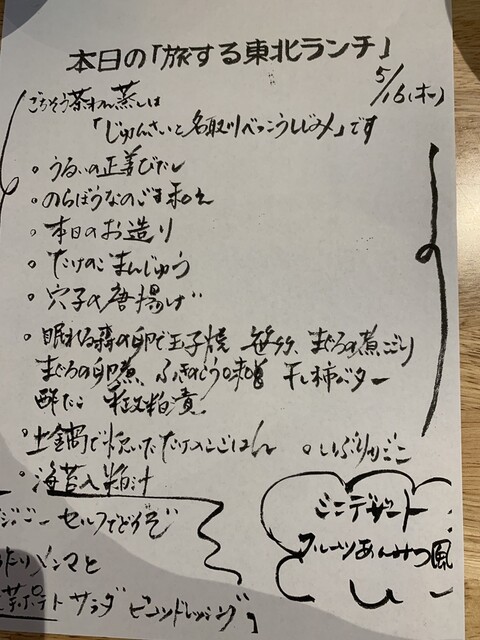 本日の「旅する東北ランチ」
5/16(木)
ごちそう茶わん蒸しは
「じゅんさいと名取川べっこうしじみ」です
・うるいの生姜びたし
・のらぼうなのごま和え
・本日のお造り
・たけのこまんじゅう
・穴子の唐揚げ
・眠れる森の卵で玉子焼 笹竹、まぐろの煮こごり
まぐろの卵煮、ふきのとう味噌 干し柿バター
酢だこ 粕漬
・土鍋で炊いたたけのこごはん
・いぶりがっこ
・海苔入粕汁
セルフでどうぞ
メンマと
ポテトサラダ ドレッシング」
ミニデザート
フルーツあんみつ風